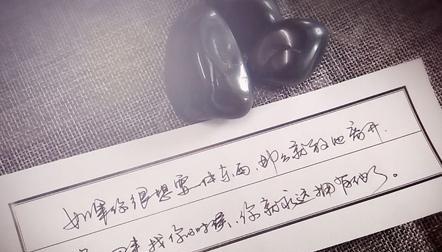 如果你很想要一件东西,那么就放他离开.
回来找你的时候,你就永远拥有他了。